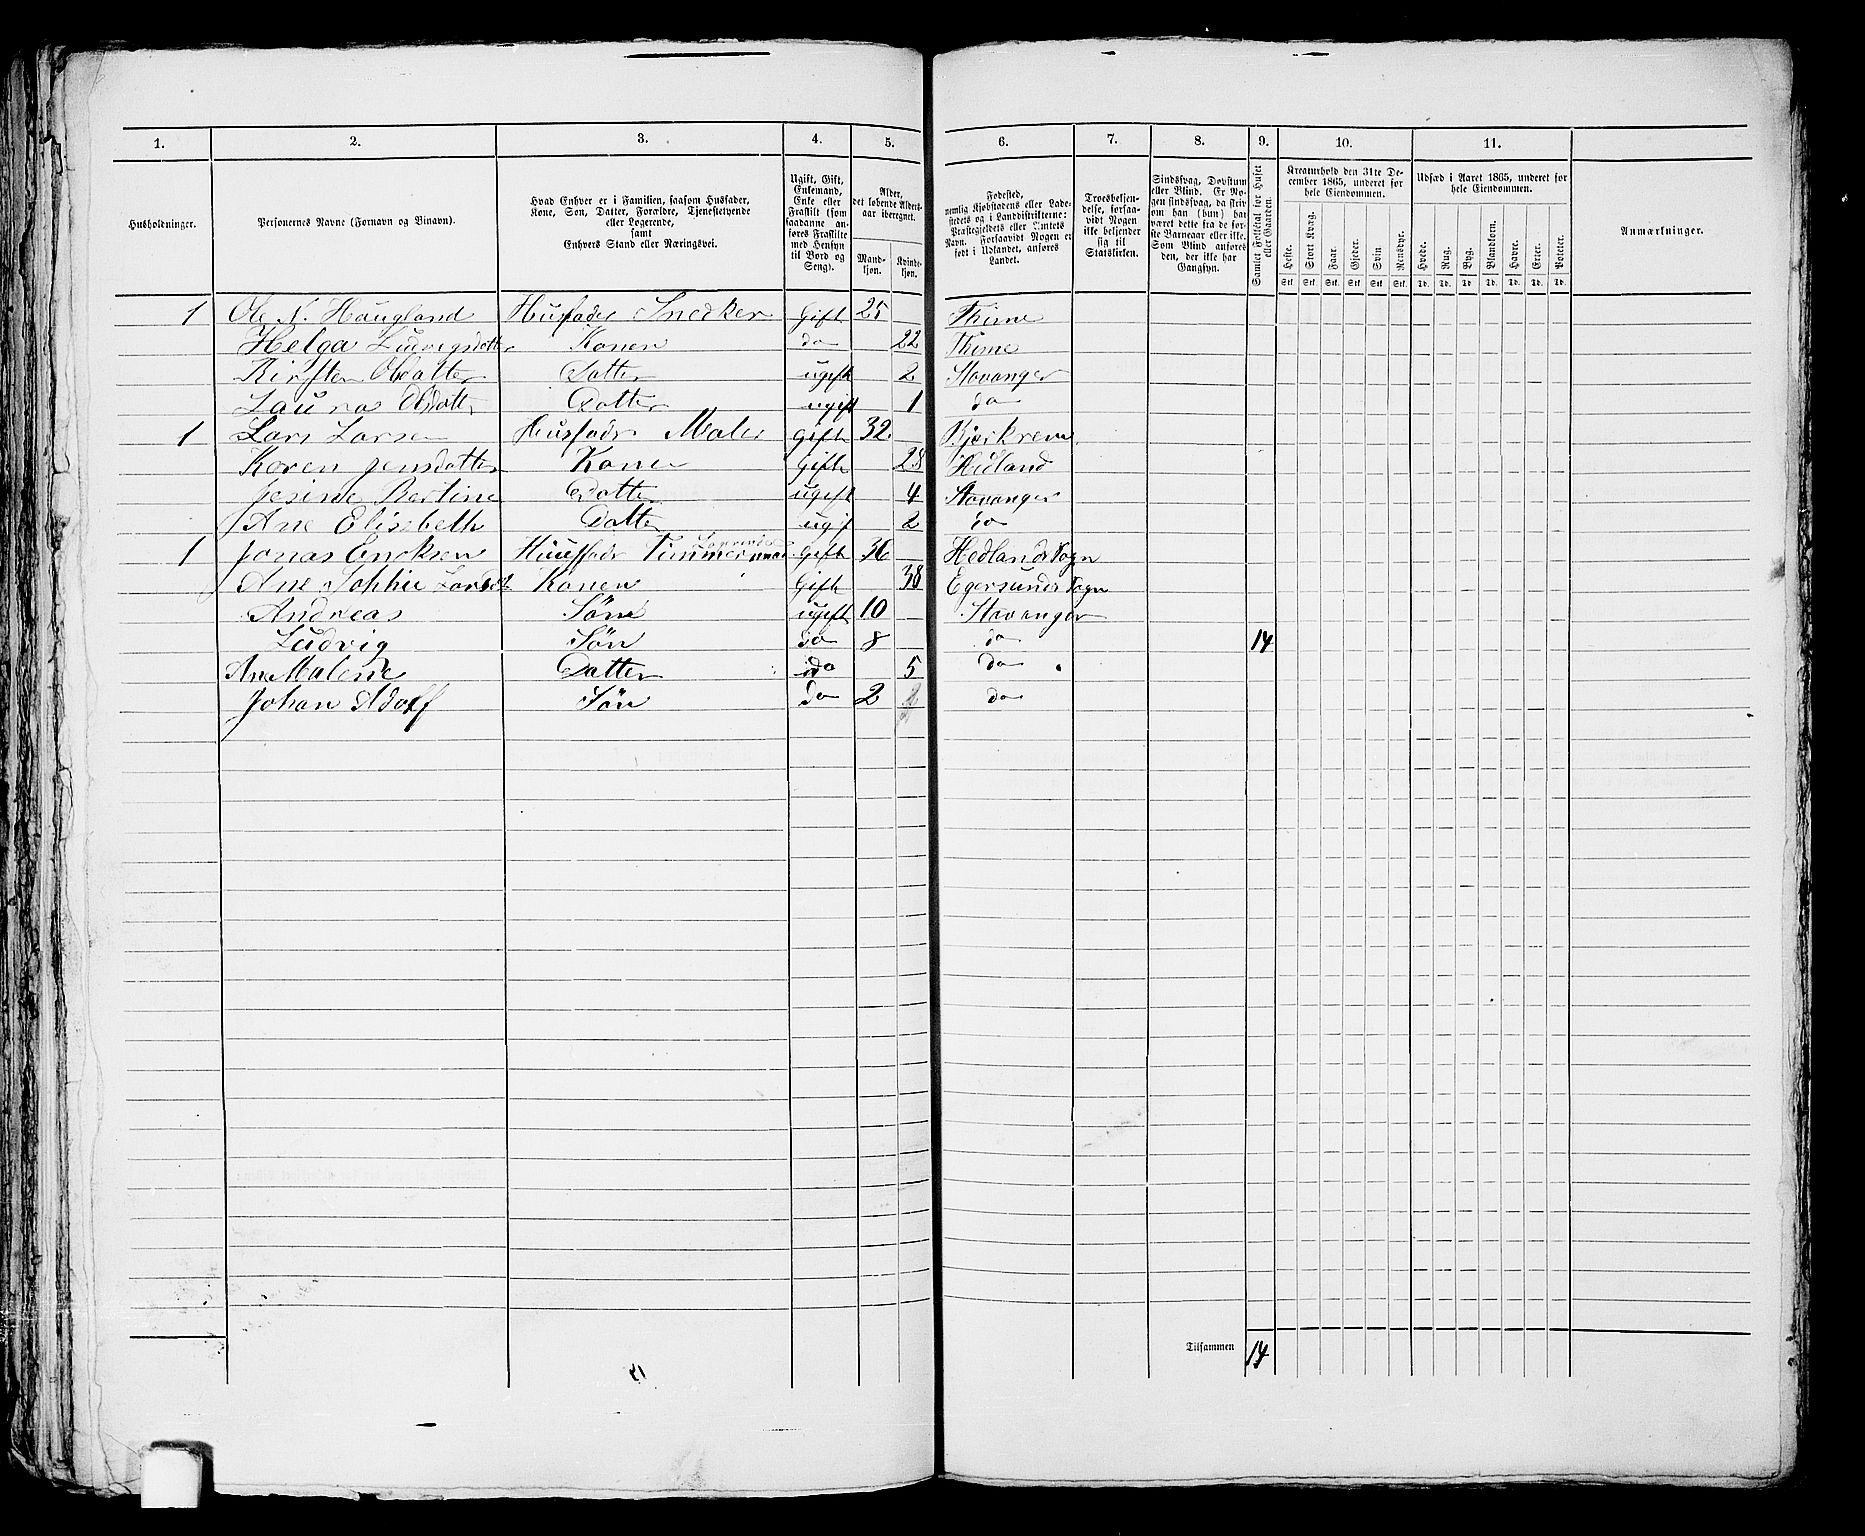 1. 2. 3. 4. 5. 6. 7. 8. 9. 10. 11.
Husholdninger.
Personernes Navne (Fornavn og Binavn).
Hvad Enhver er i Familien, saasom Husfader, Kone, Søn, Datter, Forældre, Tjenestetyende eller Logerende, samt Enhvers Stand eller Næringsvei.
Ugift, Gift, Enkemand, Enke eller Fraskilt (som saadanne anføres Fraskilte med Hensyn til Bord og Seng).
Alder, det løbende Aldersaar iberegnet.
Mandkjøn. Kvindekjøn.
Fødested, nemlig Kjøbstadens eller Ladestedets og i Landdistrikterne: Præstegjeldets eller Amtets Navn. Forsaavidt Nogen er født i Udlandet, anføres Landet.
Troesbekjendelse, forsaavidt Nogen ikke bekjender sig til Statskirken.
Sindssvag, Døvstum eller Blind. Er Nogen sindssvag, da skriv om han (hun) har været dette fra de første Barneaar eller ikke. Som Blind anføres den, der ikke har Gangsyn.
Samlet Folketal for Huset eller Gaarden.
Kreaturhold den 31te December 1865, underet for hele Eiendommen.
Heste. Stort Kvæg. Faar. Gjeder. Svin Rensdyr.
Stk. Stk. Stk. Stk. Stk. Stk.
Udsæd i Aaret 1865, underet for hele Eiendommen.
Hvede. Rug. Byg. Blandkorn. Havre. Erter. Poteter.
Td. Td. Td. Td. Td. Td. Td.
Anmærkninger.
1 Ole N. Haugland Husfader Snedker Gift 25 Thime
Helga Ludvigsdatter Konen do 22 Thime
Kirsten Olsdatter Datter ugift 2 Stavanger
Laura Olsdatter Datter ugift 1 do
1 Lars Larsen Husfader Maler gift 32 Bjerkrem
Karen Jensdatter Kone gift 28 Hedland
Jesine Bertine Datter ugift 4 Stavanger
Ane Elisebeth Datter ugif 2 do
1 Jonas Ericksen Huusfader Timmermand Gift 36 Hedlands Sogn
Ane Sophie Larsdt Konen Gift 38 Egersunds Sogn
Andreas Søn ugift 10 Stavanger
Ludvig Søn do 8 do 14
Ane Malene Datter do 5 do
Johan Adolf Søn do 2 do
Tilsammen 14